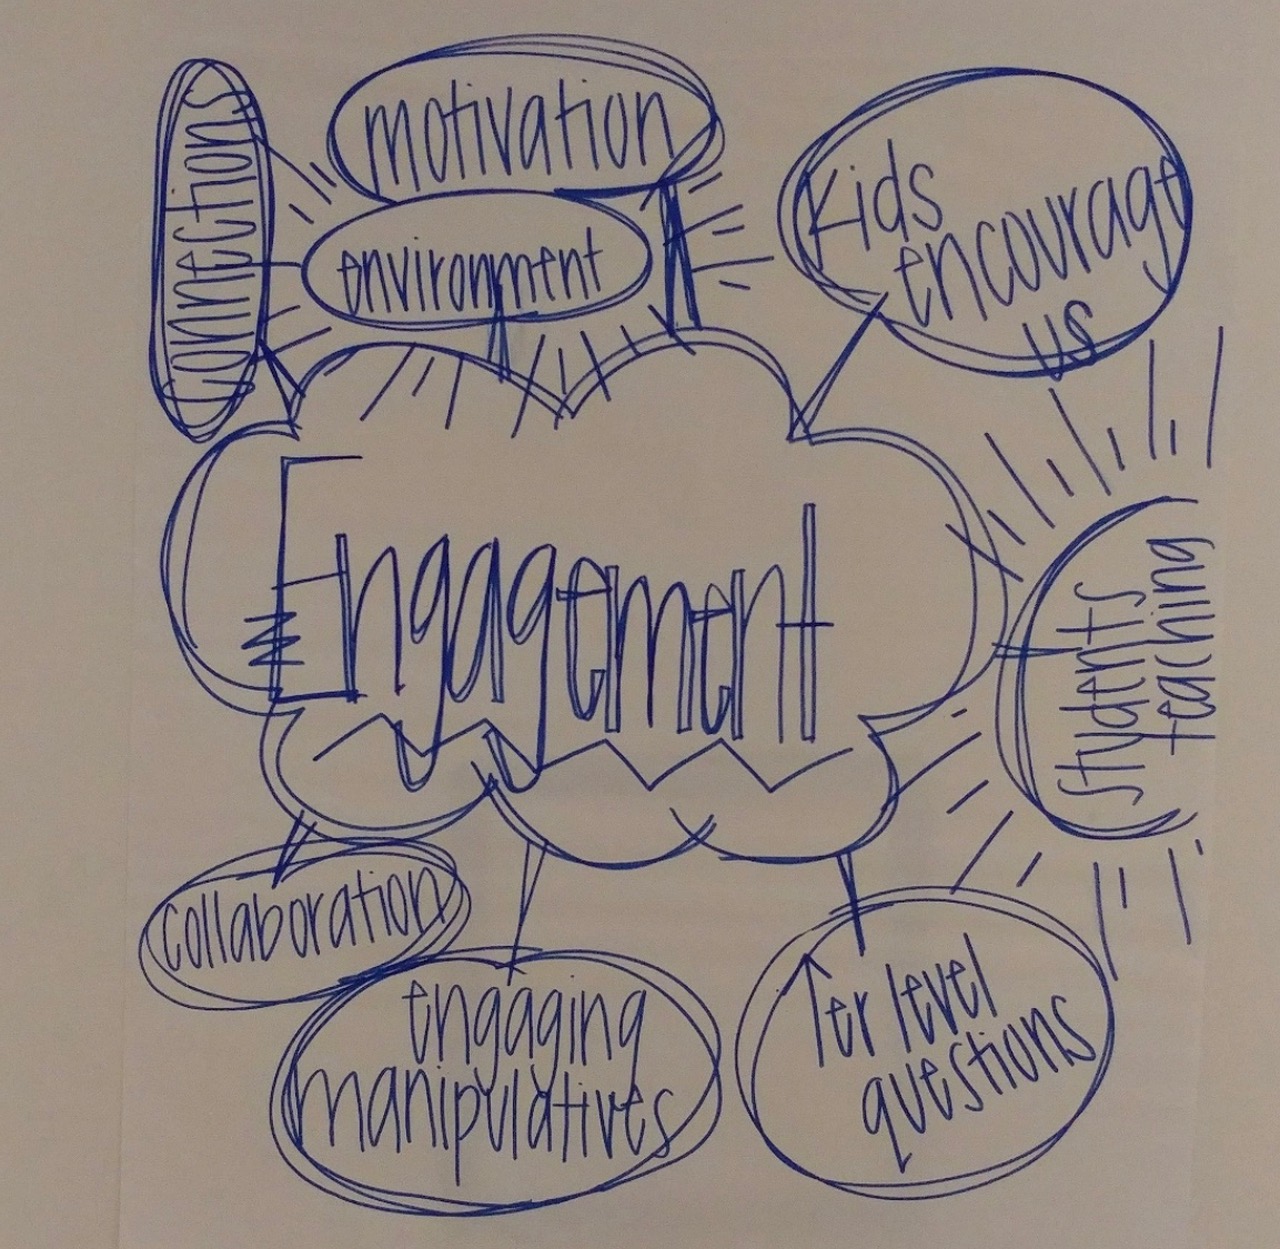 connections
motivation
environment
Kids
encourage
us
Engagement
students
teaching
collaboration
engaging
manipulatives
↑er level
questions